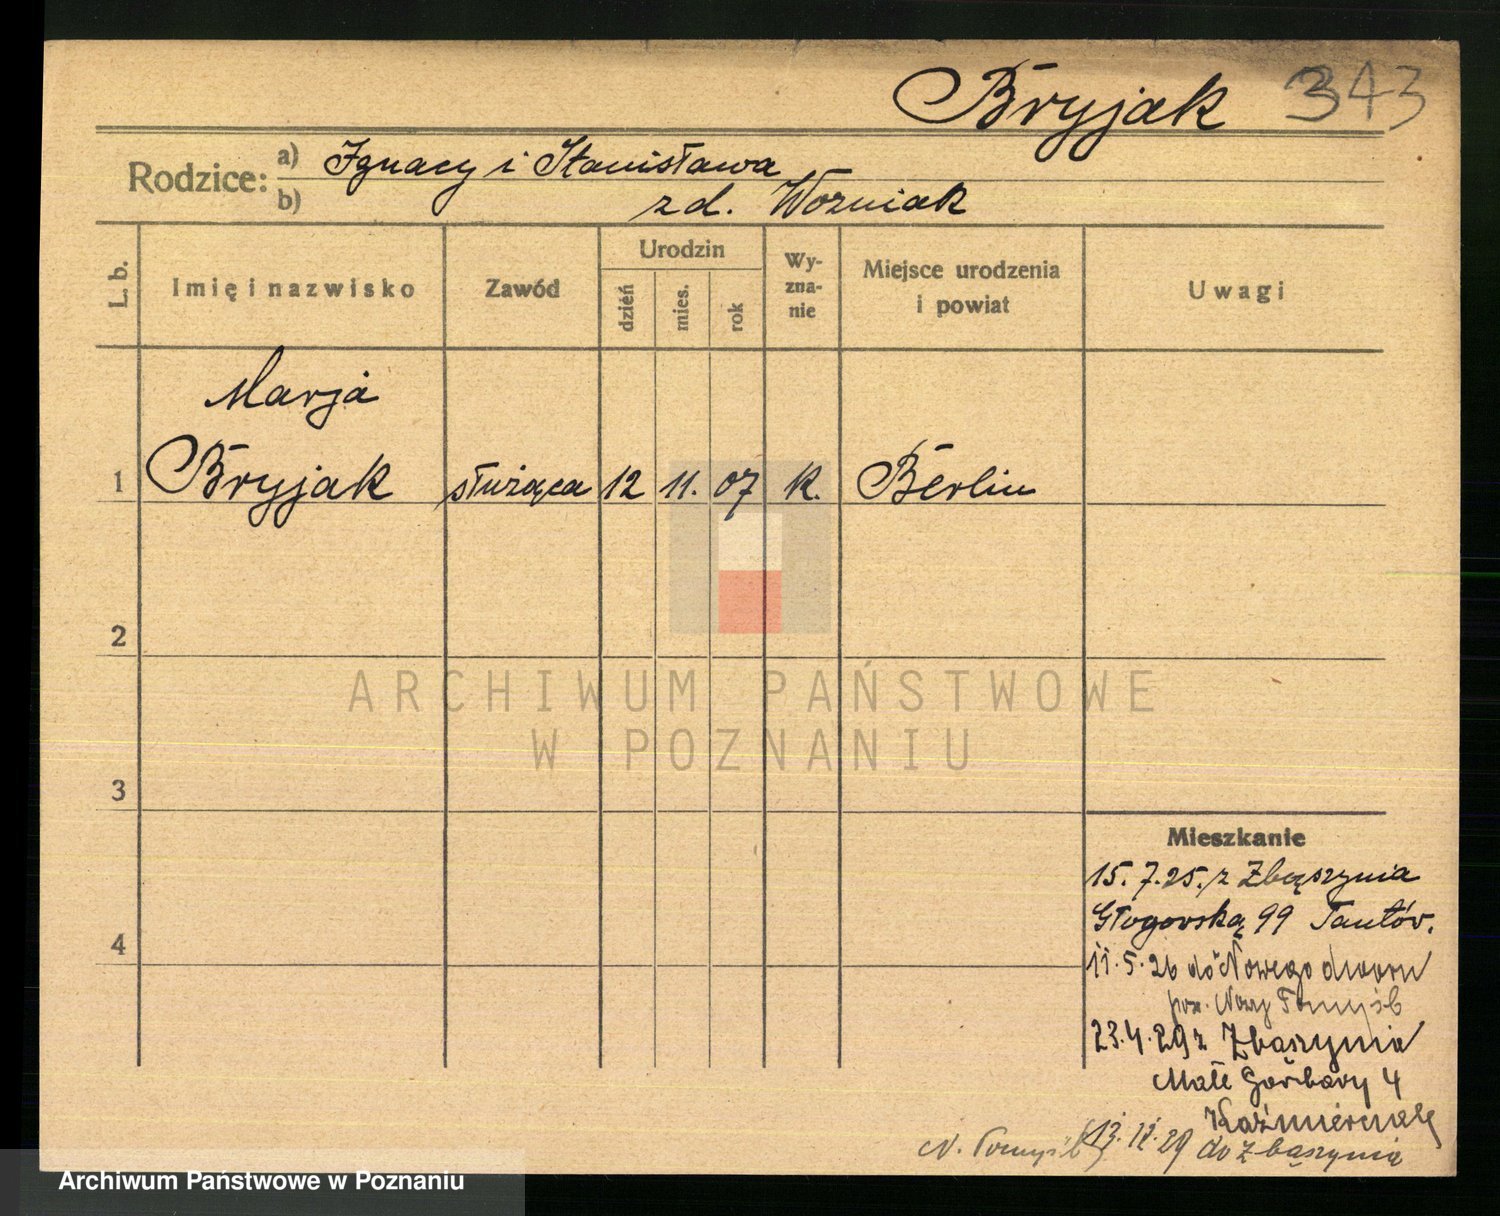 Bryjak 343
Rodzice: a) Ignacy i Stanisława
b) zd. Wozniak
L. b.
Imię i nazwisko
Zawód
Urodzin
dzień
mies.
rok
Wy-
zna-
nie
Miejsce urodzenia
i powiat
Uwagi
Marja
1 Bryjak służąca 12 11. 07 k. Berlin
2
3
4
ARCHIWUM PAŃSTWOWE
W POZNANIU
Mieszkanie
15. 7. 25. z Zbąszynia
Głogowska 99
11. 5. 26 do Nowego dworu
pow. Nowy Tomyśl
23. 4. 29 z Zbąszynia
Małe Garbary 4
Kaźmierczak
13. 12. 29 do Zbąszynia
N. Tomyśl
Archiwum Państwowe w Poznaniu